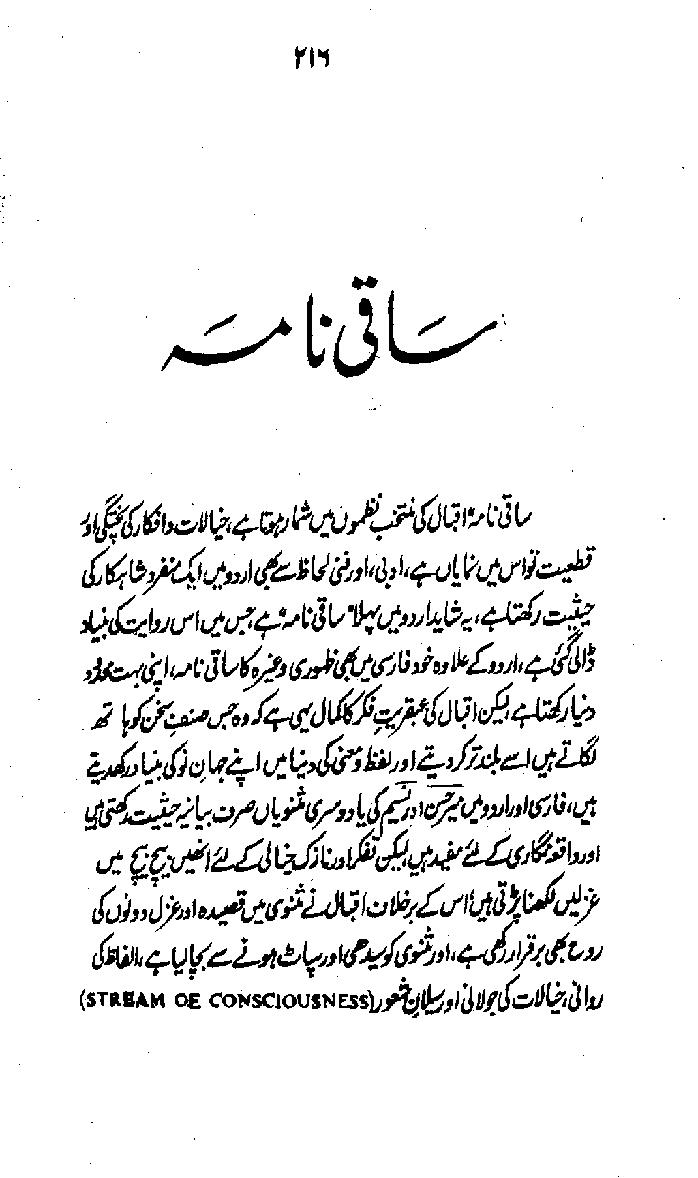 ۲۱۶
ساقی نامہ
ساقی نامہ اقبال کی منتخب نظموں میں شمار ہوتا ہے، خیالات و افکار کی پختگی اور
قطعیت تو اس میں نمایاں ہے، ادبی، اور فنی لحاظ سے بھی اردو میں ایک منفرد شاہکار کی
حیثیت رکھتا ہے، یہ شاید اردو میں پہلا "ساقی نامہ" ہے، جس میں اس روایت کی بنیاد
ڈالی گئی ہے، اردو کے علاوہ خود فارسی میں بھی ظہوری وغیرہ کا ساقی نامہ، اپنی بہت محدود
دنیا رکھتا ہے، لیکن اقبال کی عبقریتِ فکر کا کمال یہی ہے کہ وہ جس صنفِ سخن کو ہاتھ
لگاتے ہیں اسے بلند تر کر دیتے اور لفظ و معنی کی دنیا میں اپنے جہانِ نو کی بنیاد رکھ دیتے
ہیں، فارسی اور اردو میں میر حسن اور نسیم کی یا دوسری مثنویاں صرف بیانیہ حیثیت رکھتی ہیں
اور واقعہ نگاری کے لئے مفید ہیں، لیکن تفکر اور نازک خیالی کے لئے انھیں بیچ بیچ میں
غزلیں لکھنا پڑتی ہیں، اس کے برخلاف اقبال نے مثنوی میں قصیدہ اور غزل دونوں کی
روح بھی برقرار رکھی ہے، اور مثنوی کو سیدھی اور سپاٹ ہونے سے بچا لیا ہے، الفاظ کی
روانی، خیالات کی جولانی اور سیلانِ شعور (STREAM OE CONSCIOUSNESS)